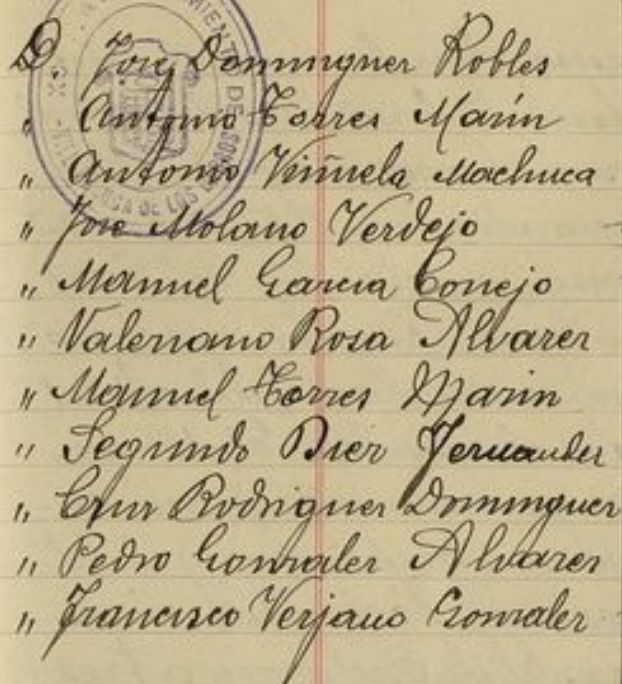 D. Jose Dominguez Robles
" Antonio Torres Marín
" Antonio Viñuela Machuca
" Jose Molano Verdejo
" Manuel Garcia Conejo
" Valeriano Rosa Alvarez
" Manuel Torres Marin
" Segundo Diez Fernandez
" Cruz Rodriguez Dominguez
" Pedro Gonzalez Alvarez
" Francisco Verjano Gonzalez